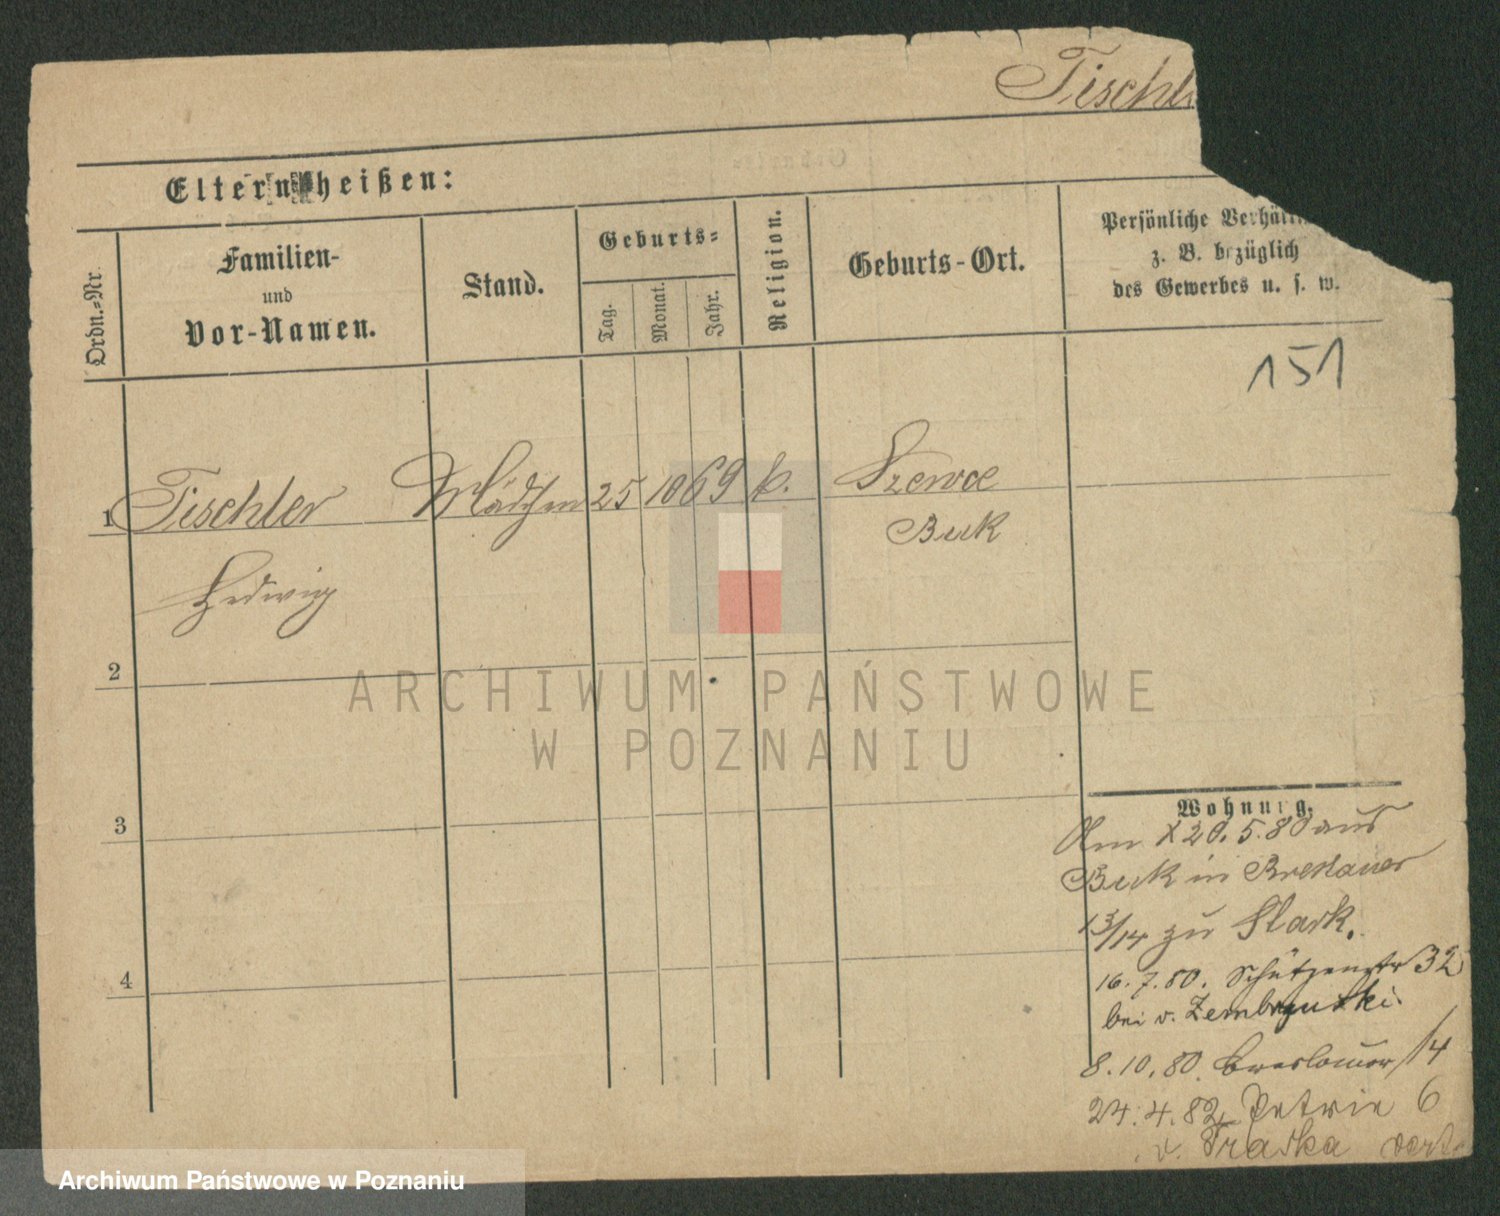 Tischl
Eltern heißen:
Ordn.=Nr.
Familien-
und
Vor-Namen.
Stand.
Geburts=
Tag.
Monat.
Jahr.
Religion.
Geburts-Ort.
Persönliche Verhält
z. B. bezüglich
des Gewerbes u. s. w.
151
1 Tischler Mädchen 25 10 69 k. Szewce
Buk
Hedwig
2
3
4
ARCHIWUM PAŃSTWOWE
W POZNANIU
Wohnung.
Am 20.5.80 aus
Buk in Breslauer
13/14 zu Stark.
16.7.80. Schützenstr 32
bei v. Zembrzuski.
8.10.80. Breslauer 14
24.4.82 Petrie 6
v. Traska
Archiwum Państwowe w Poznaniu